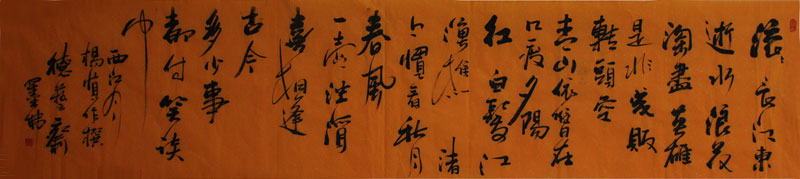 滚々長江東
逝水浪花
淘盡英雄
是非成敗
轉頭空
青山依舊在
几度夕陽
红白髮江
渔樵渚
上慣看秋月
春風
一壺濁酒
喜相逢
古今
多少事
都付笑谈
中
西江月
楊慎作撰
德藝齋
墨